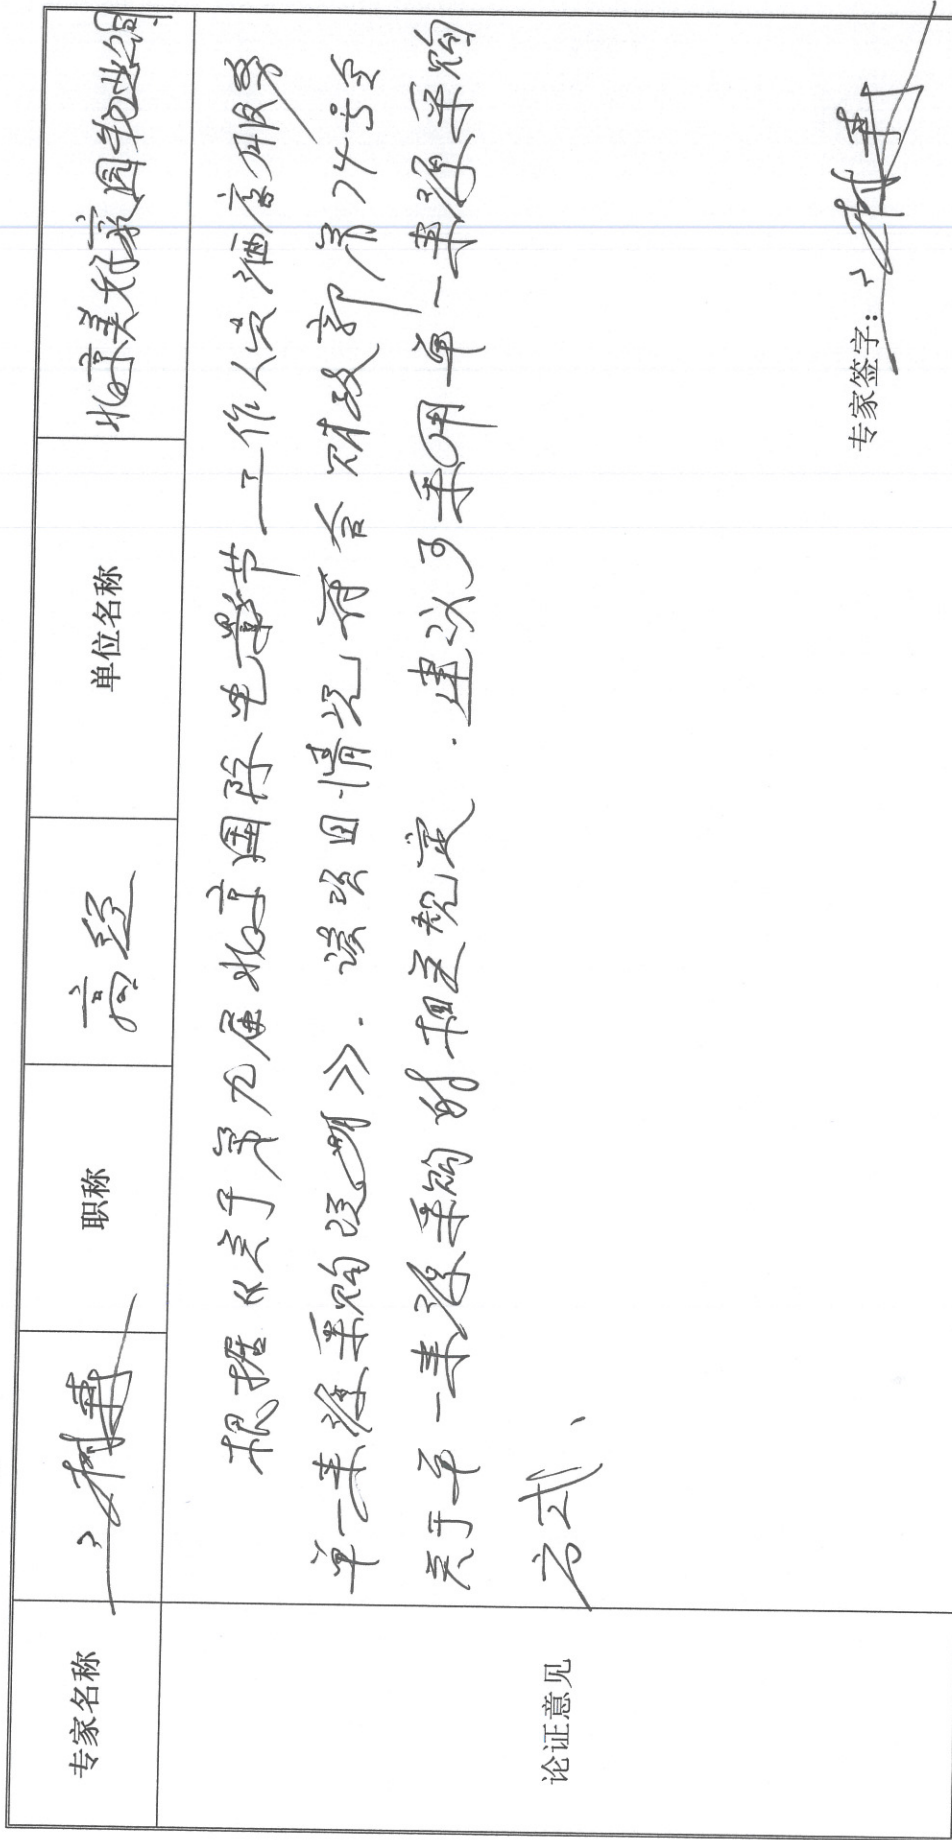 专家名称
职称
高经
单位名称
北京美好家园物业公司
论证意见
根据《关于第九届北京国际电影节工作人员酒店服务
单一来源采购说明》.该项目情况符合财政部第74号令
关于单一来源采购的相关规定.建议可采用单一来源采购
方式、
专家签字: